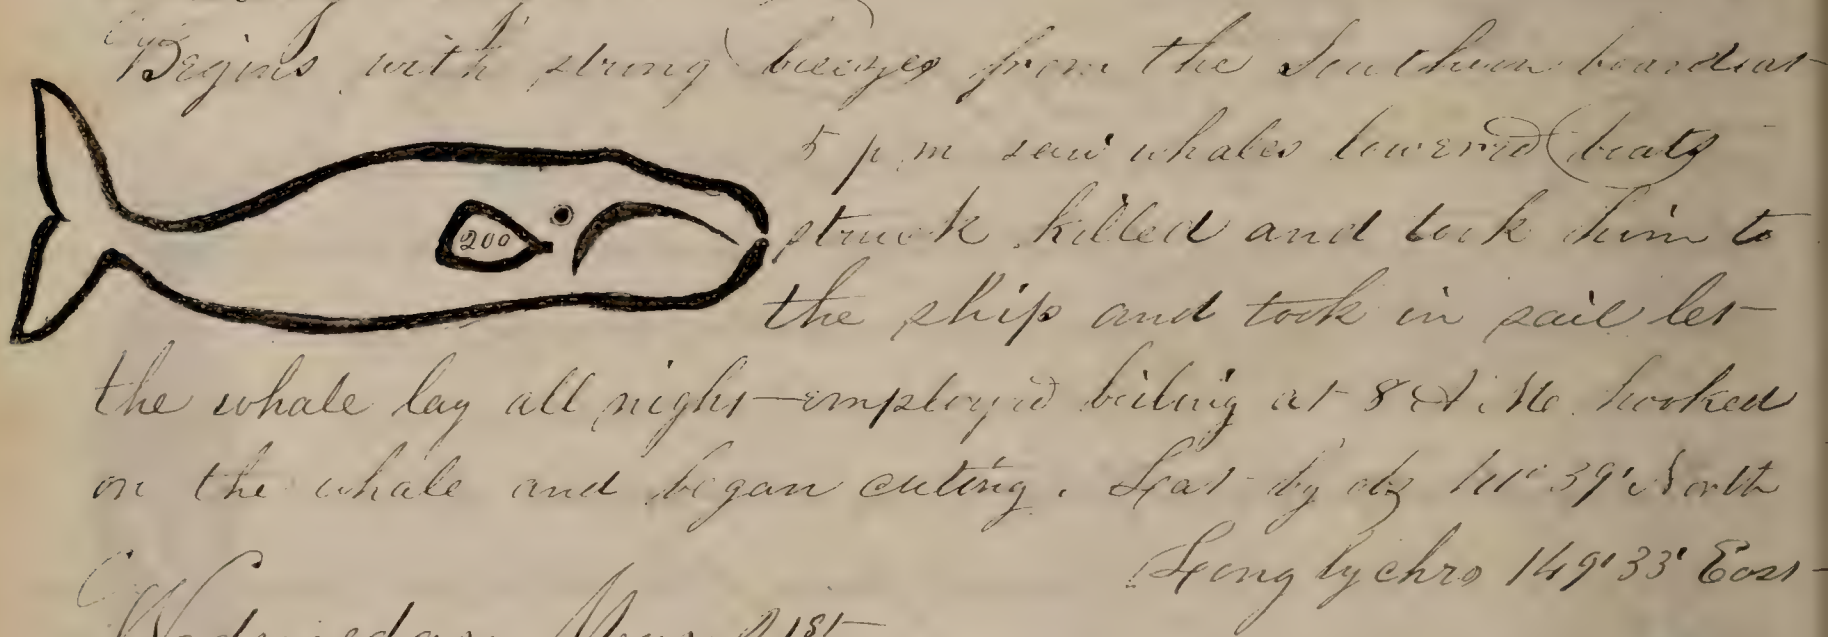 Begins with strung breezes from the Southern board at
5 p m saw whales lowered boats
struck killed and took him to
200
the ship and took in sail let
the whale lay all night employ'd boiling at 8 A Mo hooked
on the whale and began cuting. Lat by obs 39' North
Long by chro 149° 33' East
Wednesday 21st